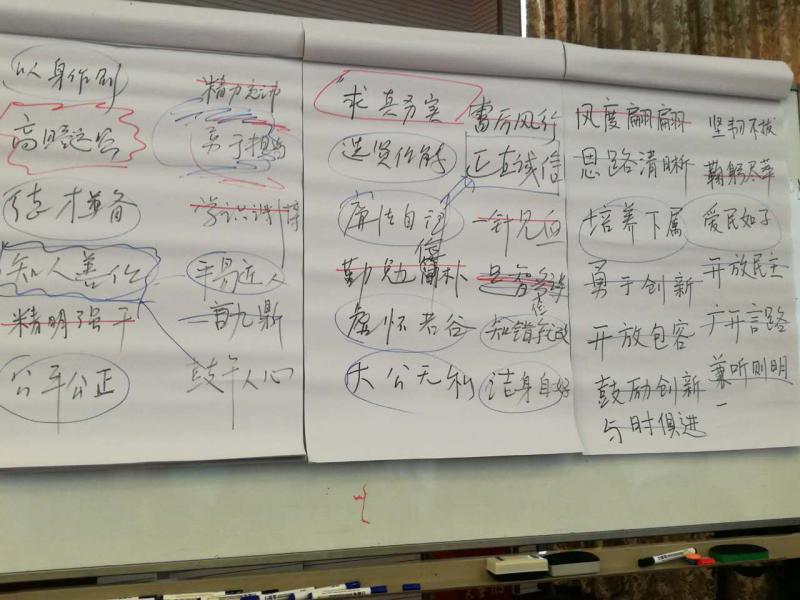 以身作则
高瞻远瞩
德才兼备
知人善任
精明强干
公平公正
精力充沛
勇于担当
学识渊博
平易近人
一言九鼎
鼓午人心
求真务实
选贤任能
廉洁自记
勤勉简朴
虚怀若谷
大公无私
雷厉风行
正直诚信
一针见血
知错能改
洁身自好
风度翩翩
思路清晰
培养下属
勇于创新
开放包容
鼓励创新
与时俱进
坚韧不拔
鞠躬尽萃
爱民如子
开放民主
广开言路
兼听则明